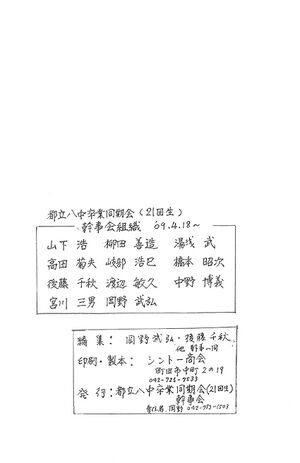 都立八中卒業同期会(21回生)
幹事会組織 09.4.18～
山下 浩 柳田 善造 湯浅 武
高田 菊夫 岐部 浩巳 橋本 昭次
後藤 千秋 渡辺 敏久 中野 博義
宮川 三男 岡野 武弘
編集: 岡野武弘・後藤千秋
他 幹事一同
印刷・製本: シントー商会
町田市中町2の19
042-725-7533
発行: 都立八中卒業同期会(21回生)
幹事会
責任者.岡野